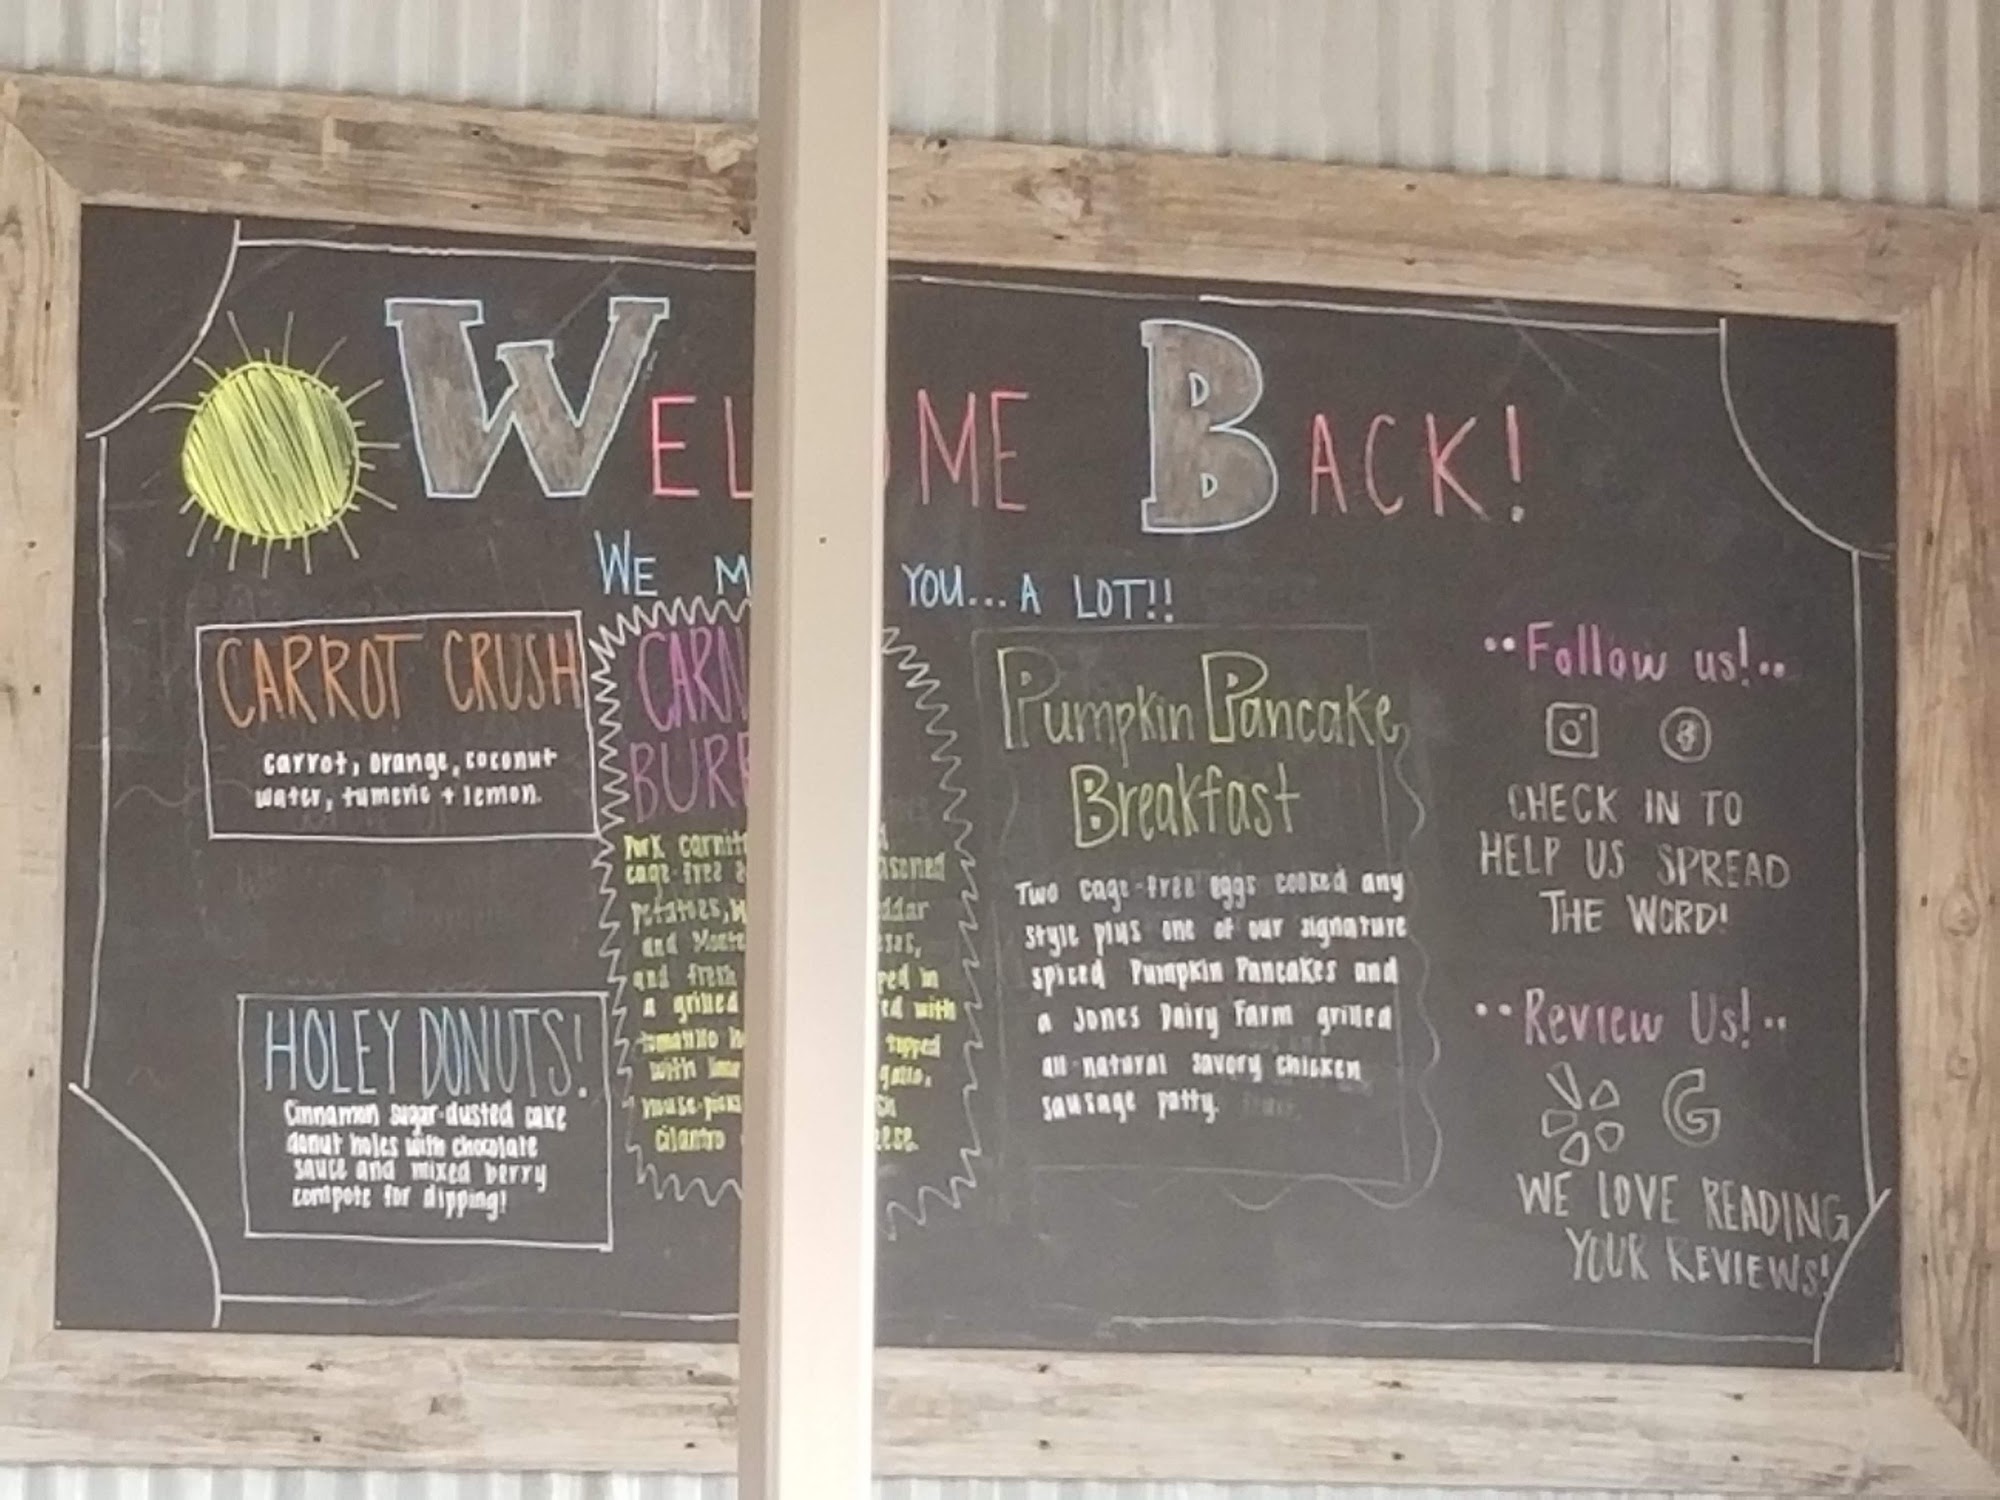 WELCOME BACK!
WE M YOU... A LOT!!
CARROT CRUSH
carrot, orange, coconut
water, tumeric + lemon.
HOLEY DONUTS!
Cinnamon sugar-dusted cake
donut holes with chocolate
sauce and mixed berry
compote for dipping!
CARN
BURR
Pork carnit
cage-free asoned
potatoes, ddar
and Monte
and fresh ped in
a grilled ed with
tomatillo topped
with
cilantro eese.
Pumpkin Pancake
Breakfast
Two cage-free eggs cooked any
style plus one of our signature
spiced Pumpkin Pancakes and
a Jones Dairy Farm grilled
all-natural savory chicken
sausage patty.
Follow us!
CHECK IN TO
HELP US SPREAD
THE WORD!
Review Us!
G
WE LOVE READING
YOUR REVIEWS!